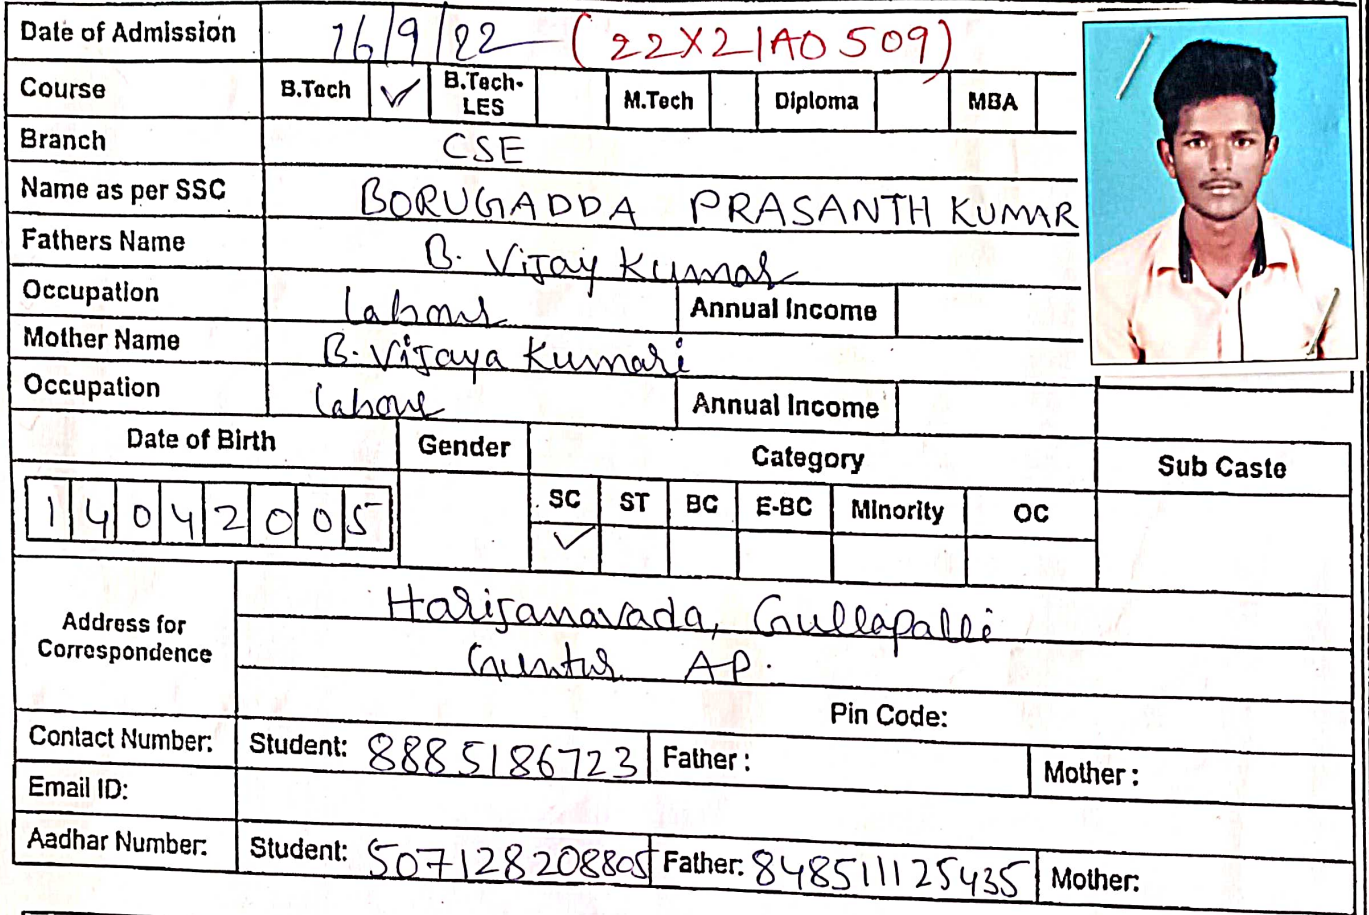 Date of Admission 16/9/22 (22X21A0509)
Course B.Tech ✓ B.Tech-LES M.Tech Diploma MBA
Branch CSE
Name as per SSC BORUGADDA PRASANTH KUMAR
Fathers Name B. Vijay Kumar
Occupation Labour Annual Income
Mother Name B. Vijaya Kumari
Occupation Labour Annual Income
Date of Birth Gender Category Sub Caste
SC ST BC E-BC Minority OC
14042005 ✓
Address for Correspondence Harijanavada, Gullapalli
Guntur AP.
Pin Code:
Contact Number: Student: 8885186723 Father: Mother:
Email ID:
Aadhar Number: Student: 507128208805 Father: 848511125435 Mother: